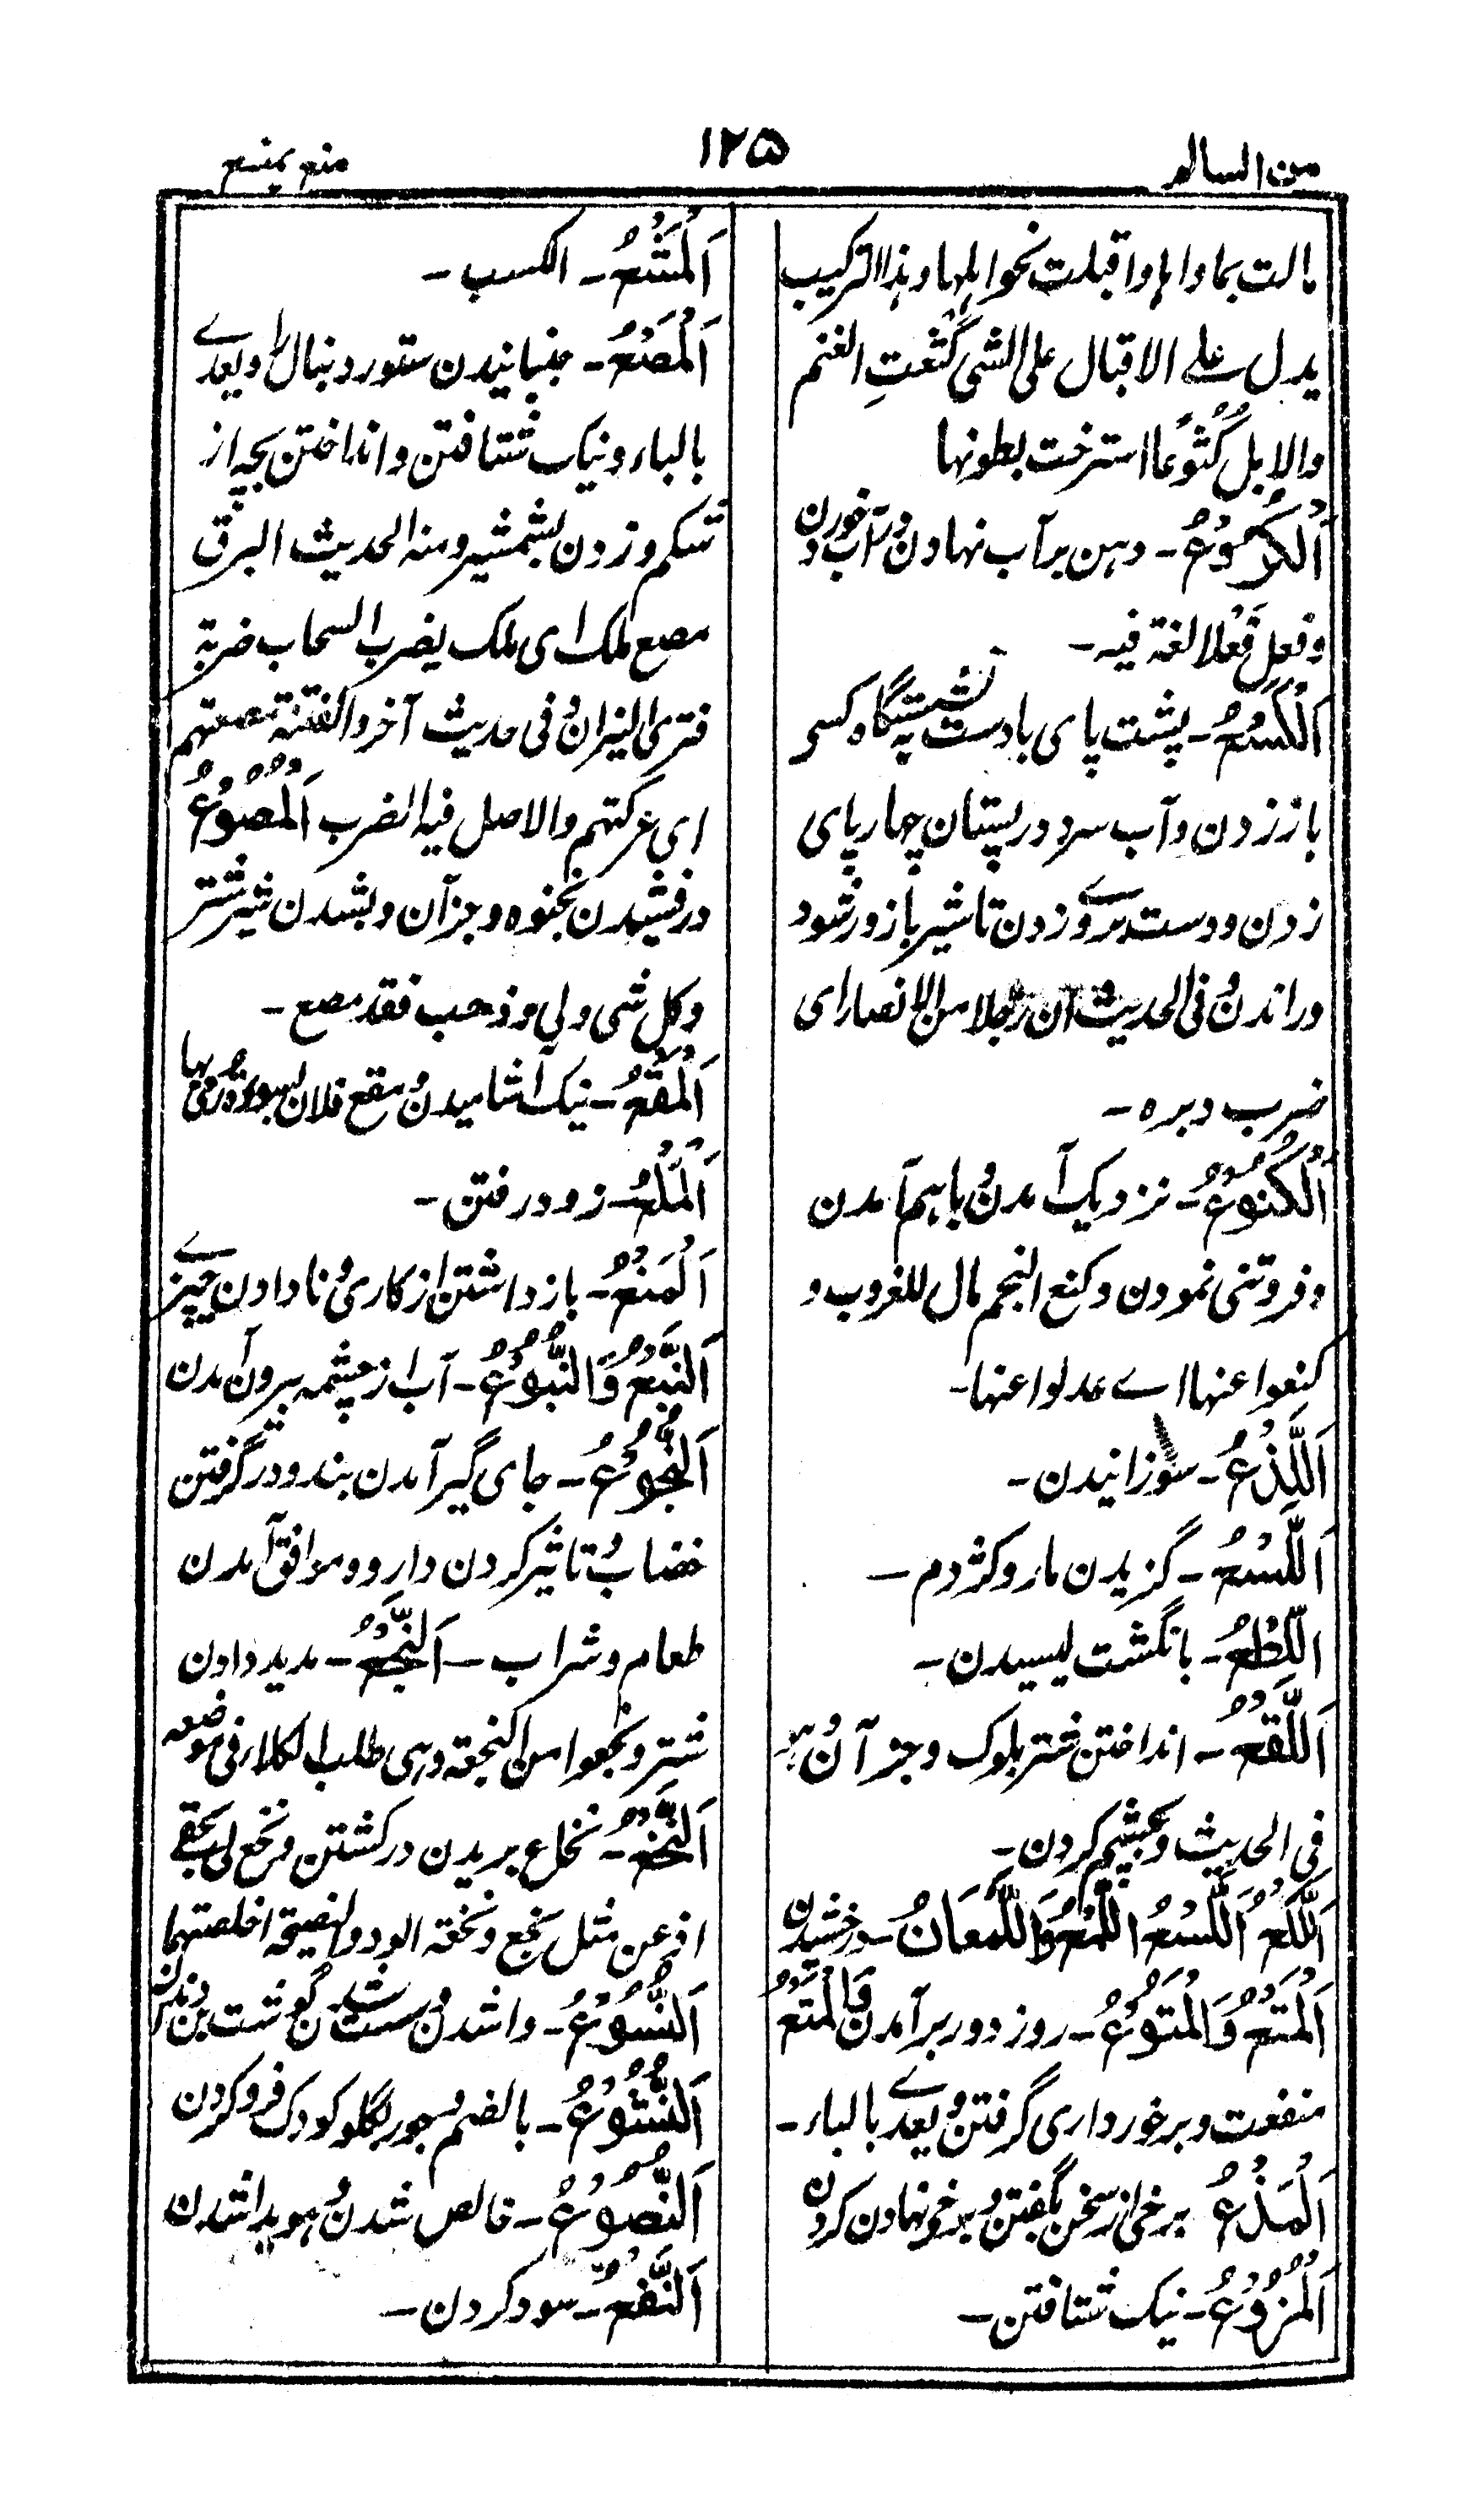 من السالم
۱۲۵
منع یمنع
مالت بما واها واقبلت نحوا بلها وهذا الترکیب
یدل علی الاقبال علی الشی کَثَعَتِ الغنم
والابلُ کُثُوعًا استرخت بطونها
اَلْکُرُوْعُ - دهن برآب نهادن و آب خوردن
وفعِل فَعْلا لغة فیه -
اَلْکَسْعُ - پشت پای یا دست به نشستگاه کسی
باز زدن وآب سرد در پستان چهارپای
زدن و دست بروے زدن تا شیر باز ورشود
وراندن وفی الحدیث ان رجلا من الانصار ای
ضرب دبره -
اَلْکُنُوْعُ - نزدیک آمدن و باهم آمدن
و فروتنی نمودن وکنع النجم مال للغروب و
کنعوا عنها اے عدلوا عنها -
اَللَّذْعُ - سوزانیدن -
اَللَّسْعُ - گزیدن مار وکژدم -
اللَّطْعُ - بانگشت لیسیدن -
اَللَّقْعُ - انداختن شتر بلوک وجز آن و
فی الحدیث وبچشم کردن -
اَللَّکْعُ اَللَّسْعُ اللَّمْعُ وَاللَّمَعَانُ - درخشیدن
اَلْمَتْعُ وَالْمُتُوْعُ - روز دور برآمدن وَالْمَتْعُ
منفعت وبرخورداری گرفتن و یعدے بالباء -
اَلْمَذْعُ برخی از سخن بگفتن و برخی نهادن کردن
اَلْمُزُوْعُ - نیک شتافتن -
اَلْمَشْعُ - الکسب -
اَلْمَصْعُ - جنبانیدن ستور دنبال را ویعدے
بالباء ونیک شتافتن وانداختن بچه از
شکم وزدن بشمشیر ومنه الحدیث البرق
مصع ملک ای ملک یضرب السحاب ضربة
فتری النیران وفی حدیث آخر والفتنة مصعتهم
ای عرکتهم والاصل فیه الضرب اَلْمُصُوْعُ
درفشیدن بخنوه وجزآن وبشدن شیر شتر
وکل شی ولی وذهب فقد مصع -
اَلْمَقْعُ - نیک آشامیدن و مقع فلان بسوءة رمی بها
اَلْمَلْعُ - زود رفتن -
اَلْمَنْعُ - بازداشتن از کاری و نادادن چیزے
اَلنَّبْعُ وَالنُّبُوْعُ - آب از چشمه بیرون آمدن
اَلنُّجُوْعُ - جای گیر آمدن پند ودر گرفتن
خضاب و تاثیر کردن دارو وموافق آمدن
طعام وشراب - اَلنَّجْعُ - مدید دادن
شتر ونجعوا من النجعة وهی طلب الکلاء فی موضعه
اَلنَّخْعُ - نخاع بریدن در کشتن ونخع لی بحقے
اذعن مثل بخع ونخعته الود والنصیحة اخلصتهما
اَلنُّسُوْعُ - واشدن و سست شدن گوشت بن دندان
اَلنُّشُوْعُ - بالضم وجور بگلو کودک فروکردن
اَلنُّصُوْعُ - خالص شدن و هویدا شدن
اَلنَّفْعُ - سود کردن -